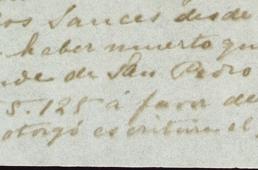 os Sauces desde
haber muerto qu
de de San Pedro
5.125 á favor de
otorgó escritura el